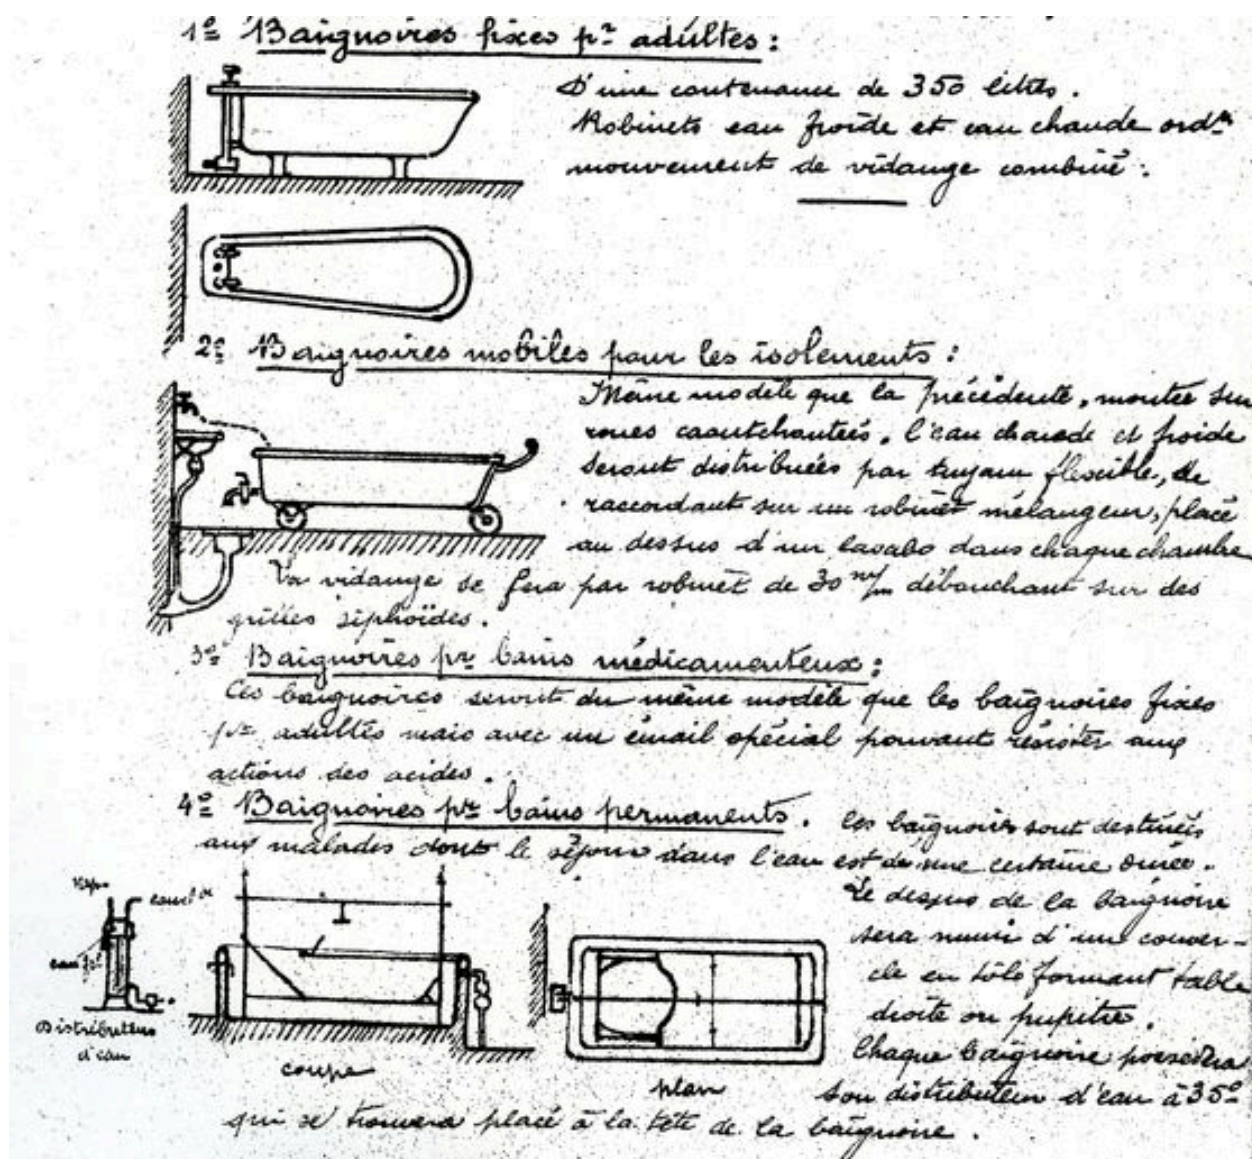 1º Baignoires fixes pr adultes :
D'une contenance de 350 litres.
Robinets eau froide et eau chaude ordres
mouvement de vidange combiné.
2º Baignoires mobiles pour les isolements :
Même modèle que la précédente, montée sur
roues caoutchoutées, l'eau chaude et froide
seront distribuées par tuyau flexible, se
raccordant sur un robinet mélangeur, placé
au dessus d'un lavabo dans chaque chambre
La vidange se fera par robinet de 30 m/m débouchant sur des
grilles siphoïdes.
3º Baignoires pr bains médicamenteux :
Ces baignoires seront du même modèle que les baignoires fixes
pr adultes mais avec un émail spécial pouvant résister aux
actions des acides.
4º Baignoires pr bains permanents. Ces baignoires sont destinées
aux malades dont le séjour dans l'eau est d'une certaine durée.
Le dessus de la baignoire
sera muni d'un couver-
cle en tôle formant table
droite ou pupitre.
Chaque baignoire possèdera
son distributeur d'eau à 35º
qui se trouvera placé à la tête de la baignoire.
Distributeur
d'eau
coupe
plan